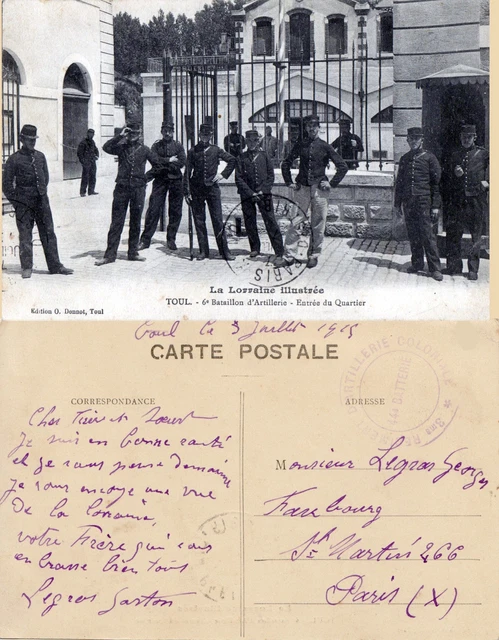 La Lorraine illustrée
TOUL. - 6e Bataillon d'Artillerie - Entrée du Quartier
Edition G. Donnot, Toul
Toul le 3 Juillet 1915
CARTE POSTALE
CORRESPONDANCE
ADRESSE
ARTILLERIE COLONIALE
BATTERIE
Cher Frère et Soeur
Je suis en bonne santé
et je vous pense de même
Je vous envoye une vue
De la Lorraine,
votre Frère qui vous
embrasse bien tous
Legras Gaston
Monsieur Legras Georges
Faubourg
St Martin 266
Paris (X)